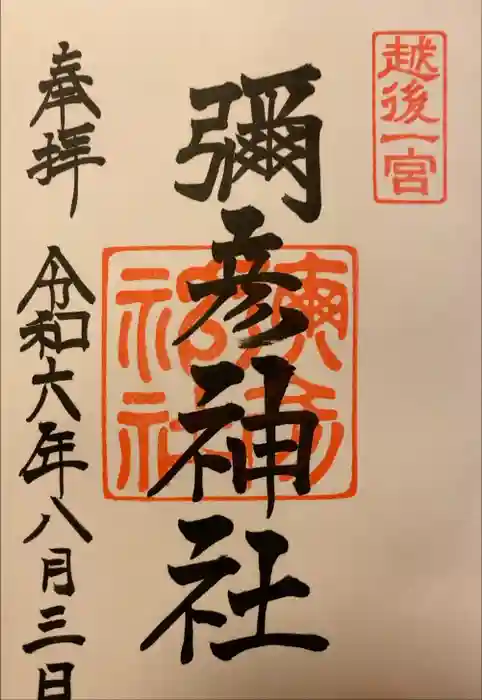 越後一宮
彌彦神社
彌彦
神社
奉拝
令和六年八月三日